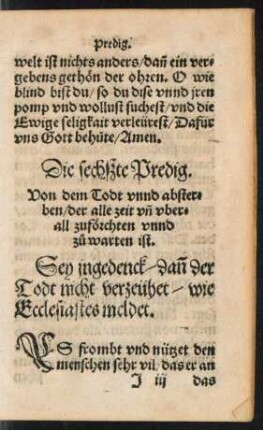 Predig.
welt ist nichts anders/dañ ein ver⸗
gebens gethön der ohren. O wie
blind bist du/ so du dise vnnd jren
pomp vnd wollust suchest/vnd die
Ewige seligkait verleürest/Dafür
vns Gott behüte/Amen.
Die sechßte Predig.
Von dem Todt vnnd abster⸗
ben/der alle zeit vñ vber⸗
all zuförchten vnnd
zů warten ist.
Sey ingedenck/dañ der
Todt nicht verzeühet/wie
Ecclesiastes meldet.
ES frombt vnd nützet den
menschen sehr vil, das er an
J iij das